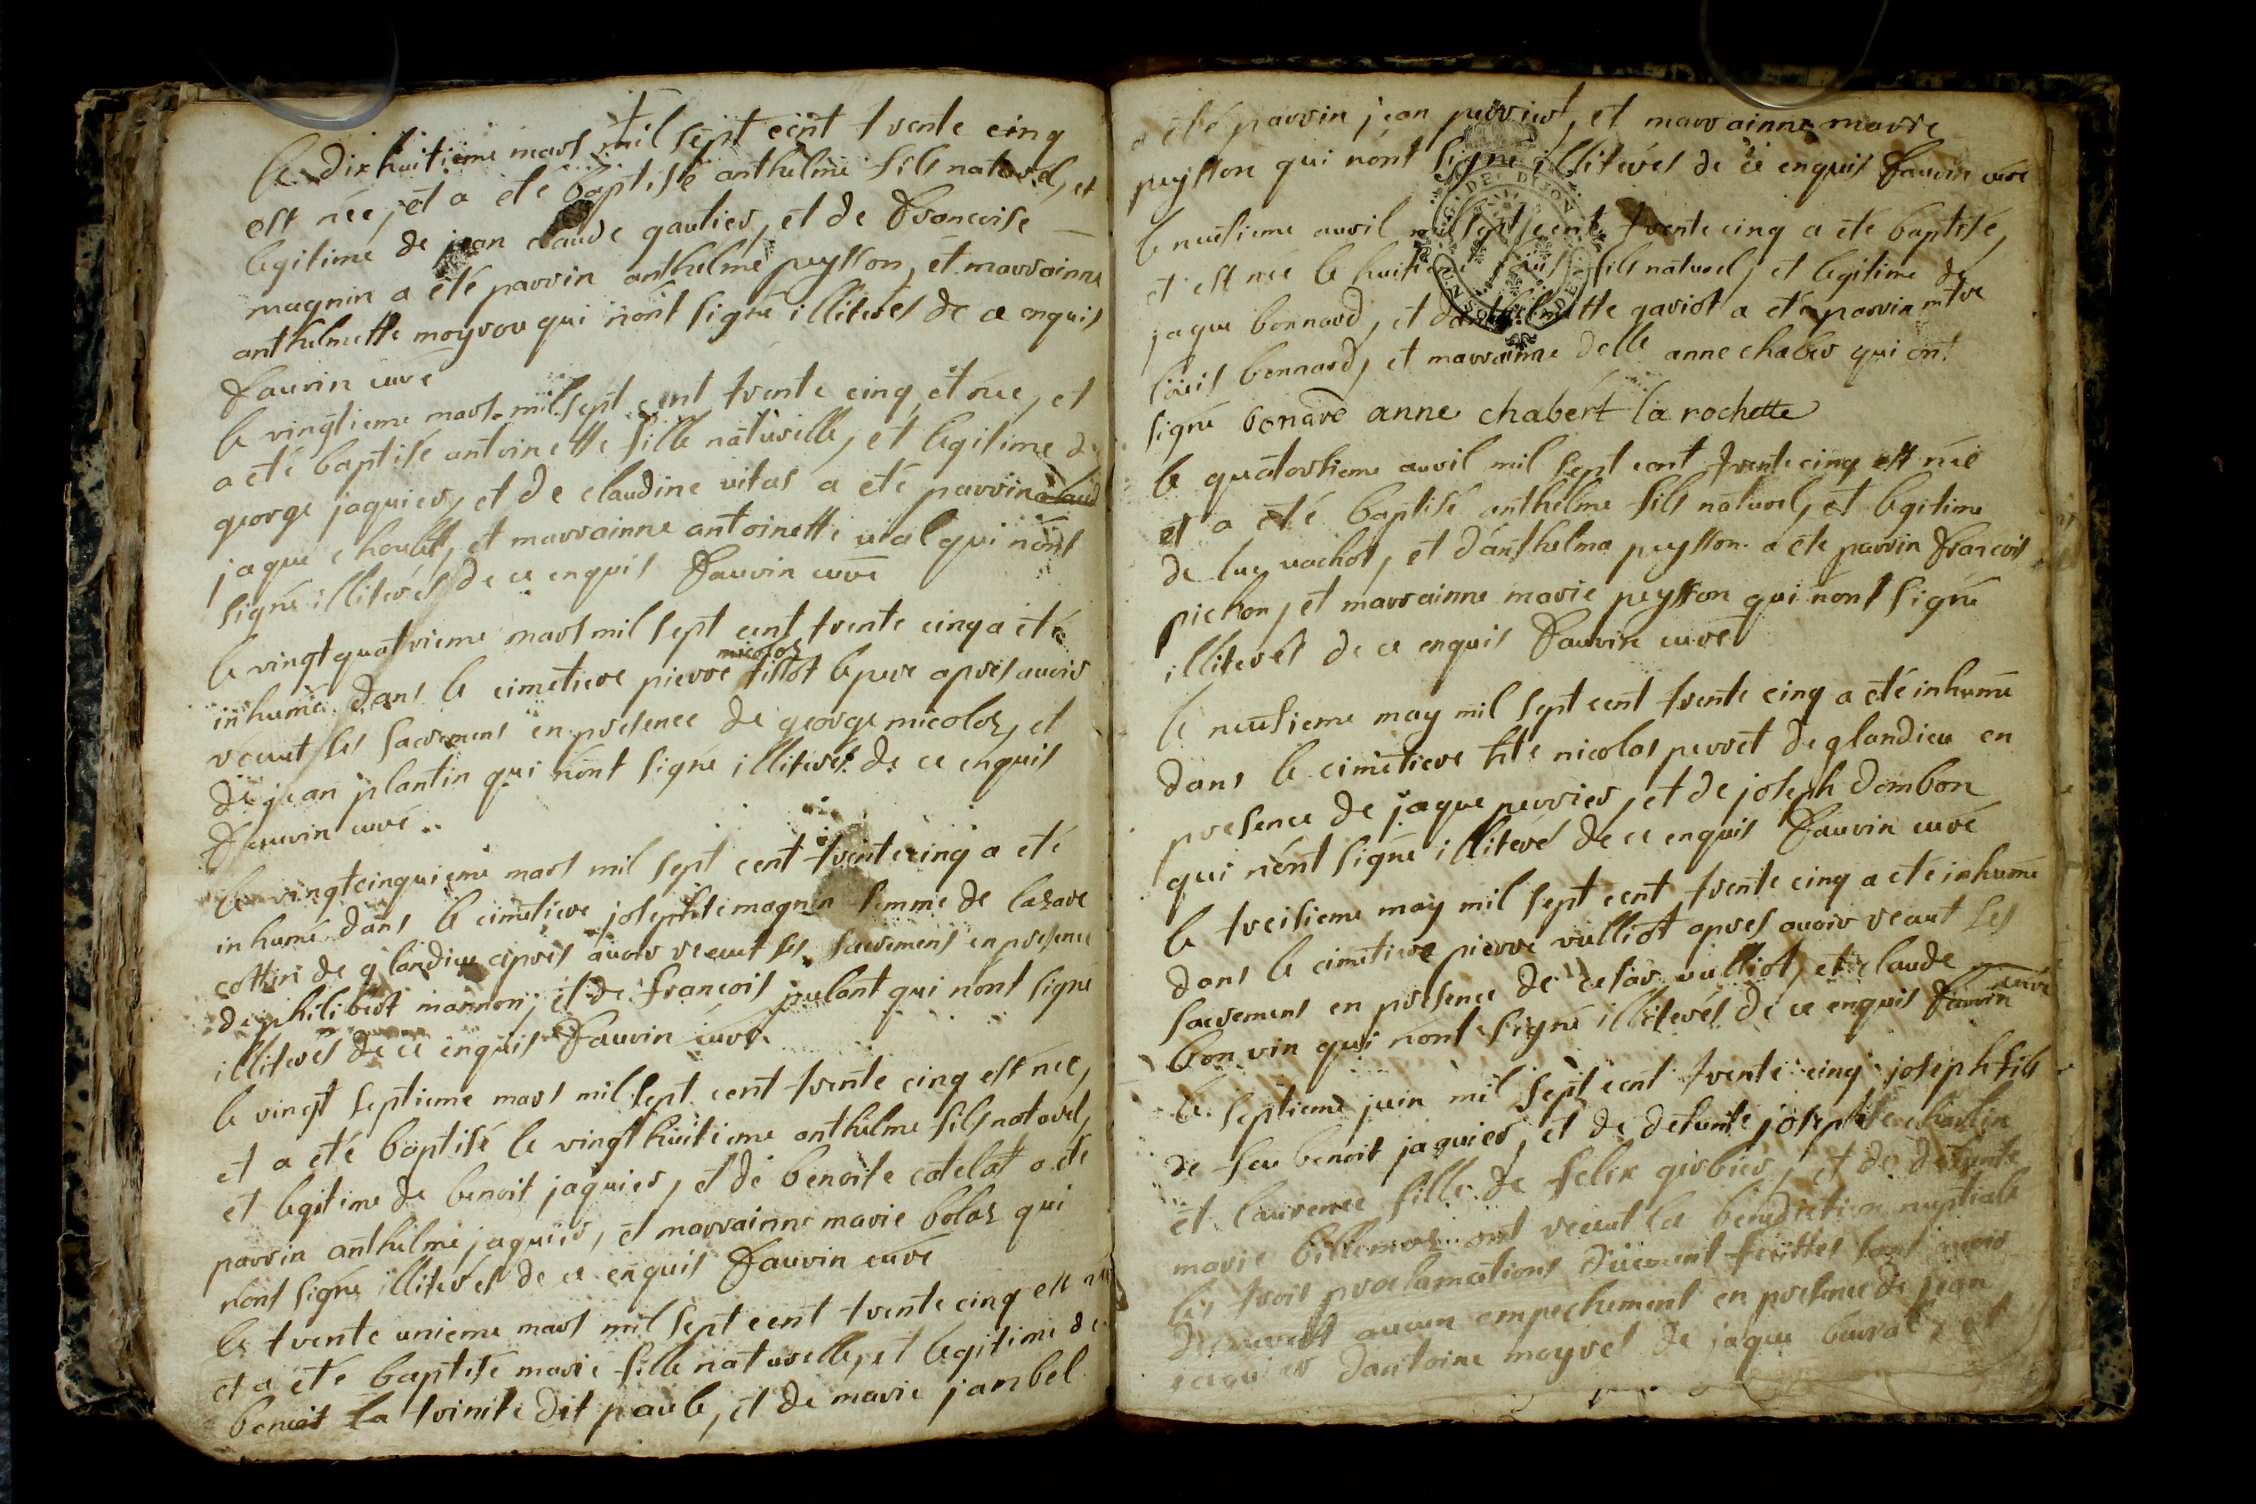 le dixhuitieme mars mil sept cent trente cinq
est née, et a été baptisé anthelme fils naturel, et
legitime de jean claude gautier, et de francoise
magnin a été parrin anthelme peysson, et marrainne
anthelmette moyrou qui nont signé illiterés de ce enquis
fauvin curé
le vingtieme mars mil sept cent trente cinq et née, et
a été baptisé antoinette fille naturelle, et legitime de
george jaquier, et de claudine vitas a été parrin
jaque choulet, et marrainne antoinette vial qui nont
signé illiterés de ce enquis fauvin curé
le vingt quatrieme mars mil sept cent trente cinq a été
micoloz
inhumé dans le cimetiere pierre tillot le pere apres avoir
receut les sacremens en presence de george micoloz, et
de jean plantin qui nont signé illiterés de ce enquis
fauvin curé
le vingtcinquieme mars mil sept cent trente cinq a été
inhumé dans le cimetiere josephte magnin femme de lasare
cottin de glandieu apres avoir receut les sacremens en presence
de philibert mannon, et de francois pulant qui nont signé
illiterés de ce enquis fauvin curé
le vingt septieme mars mil sept cent trente cinq est née,
et a été baptisé le vingt huitieme anthelme fils naturel,
et legitime de benoit jaquier, et de benoite catelat a été
parrin anthelme jaquier, et marrainne marie bolaz qui
nont signé illiterés de ce enquis fauvin curé
le trente unieme mars mil sept cent trente cinq est née
et a été baptisé marie fille naturelle, et legitime de
benoit la trinite dit paule, et de marie jambel
a été parrin jean perrier, et marrainne marie
peysson qui nont signé illiterés de ce enquis fauvin curé
le neufieme avril mil sept cent trente cinq a été baptisé,
et est née le huitieme fils naturel, et legitime de
jaque bonnard, et danthelmette gariot a été parrin mtre
louis bonnard, et marrainne delle anne chaber qui ont
signé bonard anne chabert la rochette
le quatorsieme avril mil sept cent trente cinq est née
et a été baptisé anthelme fils naturel, et legitime
de luc vachot, et d'anthelma peysson a été parrin francois
pichon, et marrainne marie peysson qui nont signé
illiterés de ce enquis fauvin curé
le neufieme may mil sept cent trente cinq a été inhumé
dans le cimetiere hte nicolas perret de glandieu en
presence de jaque perrier, et de joseph dombon
qui nont signé illiteré de ce enquis fauvin curé
le treisieme may mil sept cent trente cinq a été inhumé
dans le cimetiere pierre vulliot apres avoir receut les
sacremens en presence de cesar vulliot, et claude
bon vin qui nont signé illiterés de ce enquis fauvin curé
le septieme juin mil sept cent trente cinq joseph fils
de feu benoit jaquier, et de defunte josephte charlin
et laurence fille de felix girbier, et de defunte
marie billemaz ont receut la benediction nuptiale
les trois proclamations düement faittes sans avoir
decouvert aucun empechement en presence de jean
jaquier dantoine moyret de jaque bouvat, et